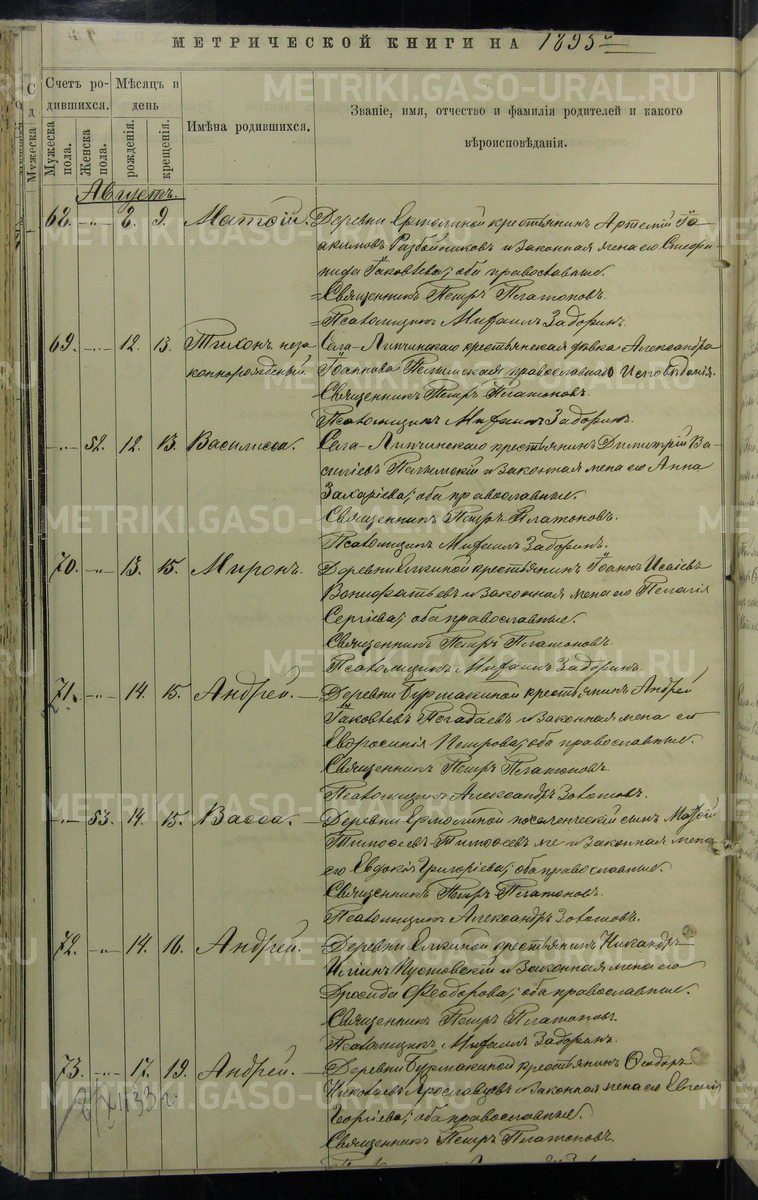 МЕТРИЧЕСКОЙ КНИГИ НА 1895й
Счетъ ро-
дившихся.
Мѣсяцъ и
день
Мужеска
пола.
Женска
пола.
рожденія.
крещенія.
Имѣна родившихся.
Званіе, имя, отчество и фамилія родителей и какого
вѣроисповѣданія.
Августъ.
68. -"- 8. 9. Матѳій. Деревни Ермолиной крестьянинъ Артемій Іо-
акимовъ Разбойниковъ и законная жена его Стефа-
нида Іаковлева; оба православные.
Священникъ Петръ Платоновъ.
Псаломщикъ Михаилъ Задоринъ.
69. -"- 12. 13. Тихонъ неза
коннорожденный
Села Липчинскаго крестьянская дѣвка Александра
Іоаннова Пелымская православнаго исповѣданія.
Священникъ Петръ Платоновъ.
Псаломщикъ Михаилъ Задоринъ.
-"- 52. 12. 13. Василисса. Села Липчинскаго крестьянинъ Димитрій Ва-
сильевъ Пелымскій и законная жена его Анна
Захаріева; оба православные.
Священникъ Петръ Платоновъ.
Псаломщикъ Михаилъ Задоринъ.
70. -"- 13. 15. Миронъ. Деревни Елкиной крестьянинъ Іоаннъ Исаіевъ
Вонифатьевъ и законная жена его Пелагія
Сергіева; оба православные.
Священникъ Петръ Платоновъ.
Псаломщикъ Михаилъ Задоринъ.
71. -"- 14. 15. Андрей. Деревни Бурмакиной крестьянинъ Андрей
Іаковлевъ Погадаевъ и законная жена его
Евфросинія Петрова; оба православные.
Священникъ Петръ Платоновъ
Псаломщикъ Александръ Золотовъ.
-"- 53. 14. 15. Васса. Деревни Ермолиной поселенческій сынъ Матѳій
Тимофеевъ Тимофеевъ же и законная жена
его Евдокія Григоріева; оба православные.
Священникъ Петръ Платоновъ.
Псаломщикъ Александръ Золотовъ.
72. -"- 14. 16. Андрей. Деревни Елкиной крестьянинъ Никандръ
Иліинъ Пустовскій и законная жена его
Дросида Феодорова; оба православные.
Священникъ Петръ Платоновъ.
Псаломщикъ Михаилъ Задоринъ.
73. -"- 17. 19. Андрей. Деревни Бурмакиной крестьянинъ Ѳеодоръ
Іаковлевъ Ярославцевъ и законная жена его Евгенія
Георгіева; оба православные.
Священникъ Петръ Платоновъ.
METRIKI.GASO-URAL.RU